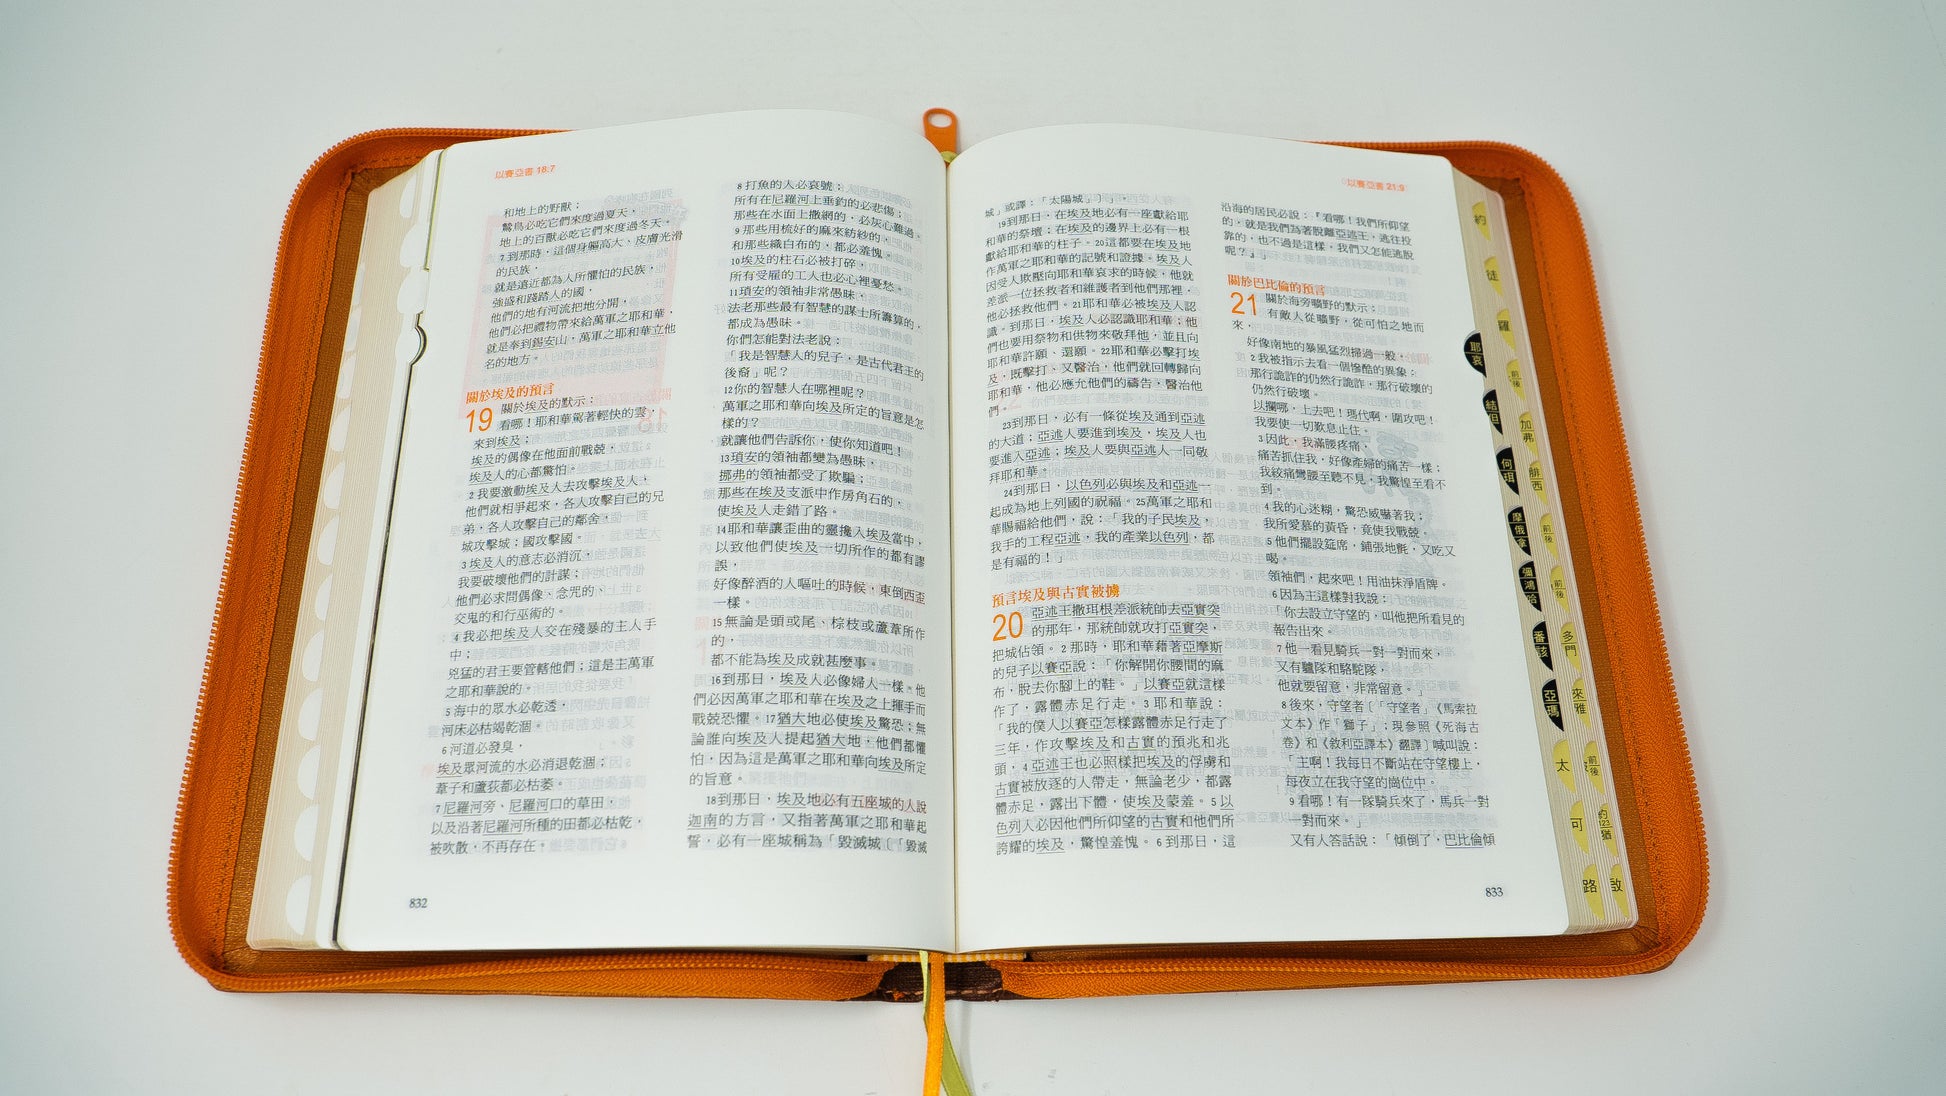 以賽亞書 18:7
和地上的野獸；
鷙鳥必吃它們來度過夏天，
地上的百獸必吃它們來度過冬天。
7 到那時，這個身軀高大、皮膚光滑
的民族，
就是遠近都為人所懼怕的民族，
強盛和踐踏人的國，
他們的地有河流把地分開，
他們必把禮物帶來給萬軍之耶和華，
就是奉到錫安山，萬軍之耶和華立他
名的地方。
關於埃及的預言
19 關於埃及的默示：
看哪！耶和華駕著輕快的雲，
來到埃及；
埃及的偶像在他面前戰兢，
埃及人的心都驚怕。
2 我要激動埃及人去攻擊埃及人，
他們就相爭起來，各人攻擊自己的兄
弟，各人攻擊自己的鄰舍，
城攻擊城；國攻擊國。
3 埃及人的意志必消沉，
我要破壞他們的計謀；
他們必求問偶像、念咒的、
交鬼的和行巫術的。
4 我必把埃及人交在殘暴的主人手
中；
兇猛的君王要管轄他們；這是主萬軍
之耶和華說的。
5 海中的眾水必乾透，
河床必枯竭乾涸。
6 河道必發臭，
埃及眾河流的水必消退乾涸；
葦子和蘆荻都必枯萎。
7 尼羅河旁、尼羅河口的草田，
以及沿著尼羅河所種的田都必枯乾，
被吹散，不再存在。
832
8 打魚的人必哀號；
所有在尼羅河上垂釣的必悲傷；
那些在水面上撒網的，必灰心難過。
9 那些用梳好的麻來紡紗的，
和那些織白布的，都必羞愧。
10 埃及的柱石必被打碎，
所有受雇的工人也必心裡憂愁。
11 瑣安的領袖非常愚昧，
法老那些最有智慧的謀士所籌算的，
都成為愚昧。
你們怎能對法老說：
「我是智慧人的兒子，是古代君王的
後裔」呢？
12 你的智慧人在哪裡呢？
萬軍之耶和華向埃及所定的旨意是怎
樣的？
就讓他們告訴你，使你知道吧！
13 瑣安的領袖都變為愚昧，
挪弗的領袖都受了欺騙；
那些在埃及支派中作房角石的，
使埃及人走錯了路。
14 耶和華讓歪曲的靈攙入埃及當中，
以致他們使埃及一切所作的都有謬
誤，
好像醉酒的人嘔吐的時候，東倒西歪
一樣。
15 無論是頭或尾、棕枝或蘆葦所作
的，
都不能為埃及成就甚麼事。
16 到那日，埃及人必像婦人一樣。他
們必因萬軍之耶和華在埃及之上揮手而
戰兢恐懼。17 猶大地必使埃及驚恐；無
論誰向埃及人提起猶大地，他們都懼
怕，因為這是萬軍之耶和華向埃及所定
的旨意。
18 到那日，埃及地必有五座城的人說
迦南的方言，又指著萬軍之耶和華起
誓，必有一座城稱為「毀滅城〔「毀滅
以賽亞書 21:9
城」或譯：「太陽城」〕」。
19 到那日，在埃及地必有一座獻給耶
和華的祭壇；在埃及的邊界上必有一根
獻給耶和華的柱子。20 這都要在埃及地
作萬軍之耶和華的記號和證據。埃及人
因受人欺壓向耶和華哀求的時候，他就
差派一位拯救者和維護者到他們那裡，
他必拯救他們。21 耶和華必被埃及人認
識。到那日，埃及人必認識耶和華；他
們也要用祭物和供物來敬拜他，並且向
耶和華許願、還願。22 耶和華必擊打埃
及，既擊打、又醫治，他們就回轉歸向
耶和華，他必應允他們的禱告，醫治他
們。
23 到那日，必有一條從埃及通到亞述
的大道；亞述人要進到埃及，埃及人也
要進入亞述；埃及人要與亞述人一同敬
拜耶和華。
24 到那日，以色列必與埃及和亞述一
起成為地上列國的祝福。25 萬軍之耶和
華賜福給他們，說：「我的子民埃及，
我手的工程亞述，我的產業以色列，都
是有福的！」
預言埃及與古實被擄
20 亞述王撒珥根差派統帥去亞實突
的那年，那統帥就攻打亞實突，
把城佔領。2 那時，耶和華藉著亞摩斯
的兒子以賽亞說：「你解開你腰間的麻
布，脫去你腳上的鞋。」以賽亞就這樣
作了，露體赤足行走。3 耶和華說：
「我的僕人以賽亞怎樣露體赤足行走了
三年，作攻擊埃及和古實的預兆和兆
頭，4 亞述王也必照樣把埃及的俘虜和
古實被放逐的人帶走，無論老少，都露
體赤足，露出下體，使埃及蒙羞。5 以
色列人必因他們所仰望的古實和他們所
誇耀的埃及，驚惶羞愧。6 到那日，這
沿海的居民必說：『看哪！我們所仰望
的，就是我們為著脫離亞述王，逃往投
靠的，也不過是這樣，我們又怎能逃脫
呢？』」
關於巴比倫的預言
21 關於海旁曠野的默示：
有敵人從曠野，從可怕之地而
來，
好像南地的暴風猛烈掃過一般，
2 我被指示去看一個慘酷的異象：
那行詭詐的仍然行詭詐，那行破壞的
仍然行破壞。
以攔哪，上去吧！瑪代啊，圍攻吧！
我要使一切歎息止住。
3 因此，我滿腰疼痛，
痛苦抓住我，好像產婦的痛苦一樣；
我絞痛彎腰至聽不見，我驚惶至看不
到。
4 我的心迷糊，驚恐威嚇著我；
我所愛慕的黃昏，竟使我戰兢。
5 他們擺設筵席，鋪張地氈，又吃又
喝。
領袖們，起來吧！用油抹淨盾牌。
6 因為主這樣對我說：
「你去設立守望的，叫他把所看見的
報告出來。
7 他一看見騎兵一對一對而來，
又有驢隊和駱駝隊，
他就要留意，非常留意。」
8 後來，守望者〔「守望者」《馬索拉
文本》作「獅子」；現參照《死海古
卷》和《敘利亞譯本》翻譯〕喊叫說：
「主啊！我每日不斷站在守望樓上，
每夜立在我守望的崗位中。
9 看哪！有一隊騎兵來了，馬兵一對
一對而來。」
又有人答話說：「傾倒了，巴比倫傾
833
耶哀
結但
何珥
摩俄拿
彌鴻哈
番該
亞瑪
約
徒
羅
前後
加弗
腓西
前後
前後
多門
來雅
太
前後
可
約123猶
路
啟